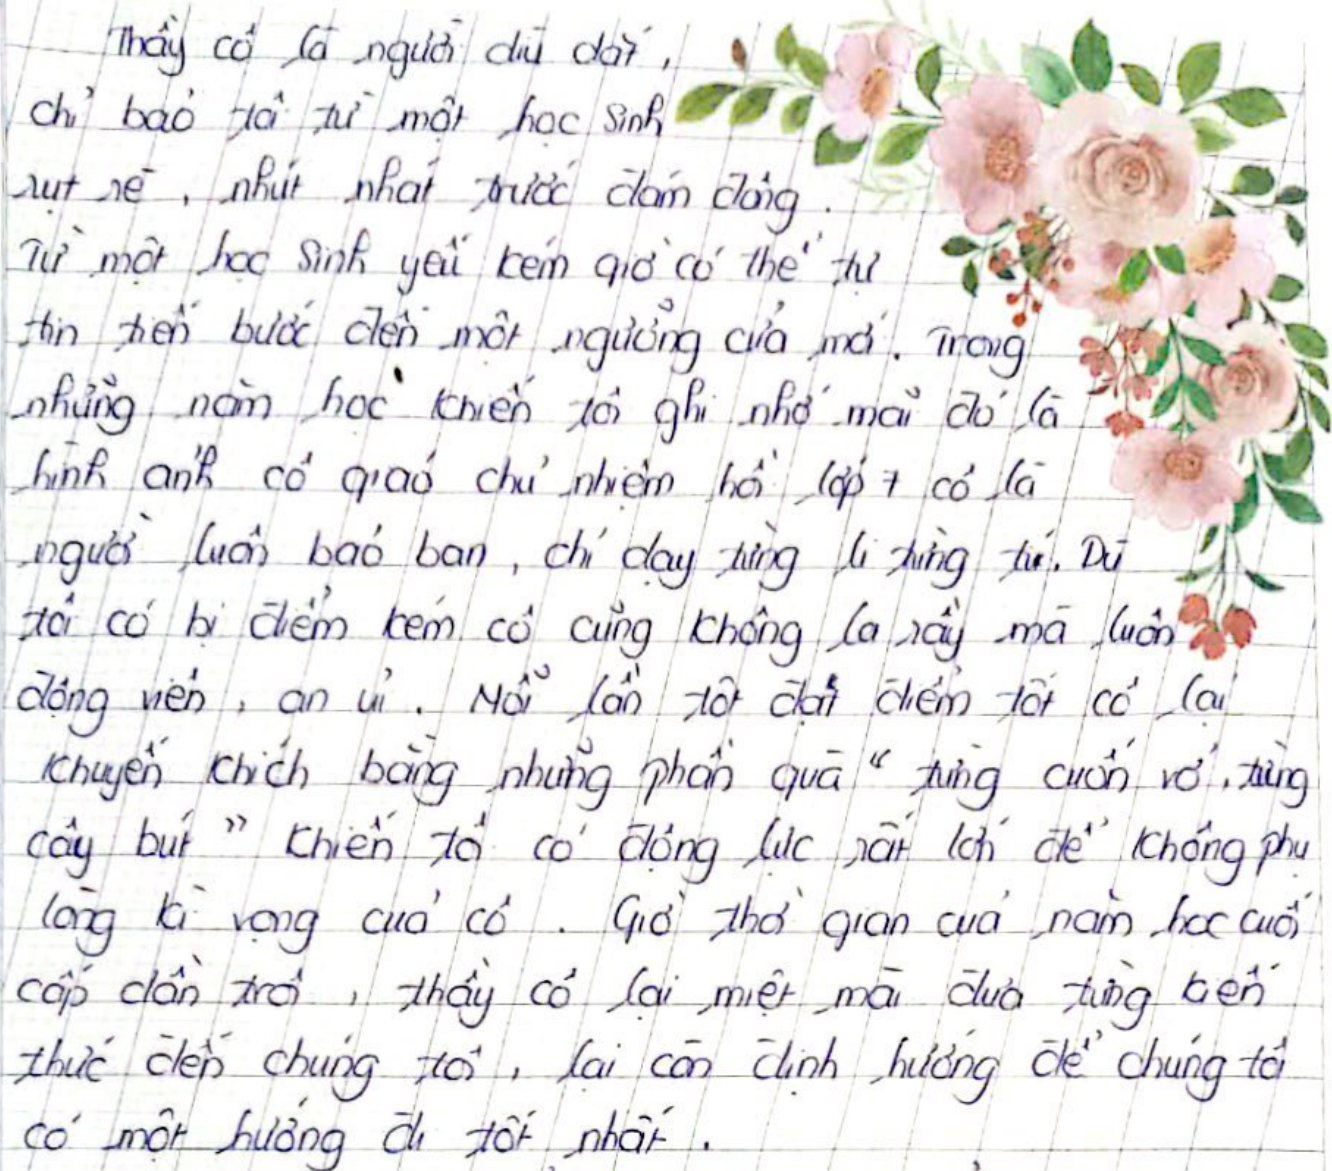 Thầy cô là người dìu dắt,
chỉ bảo tôi từ một học sinh
rụt rè, nhút nhát trước đám đông.
Từ một học sinh yếu kém giờ có thể tự
tin tiến bước đến một ngưỡng cửa mới. Trong
những năm học khiến tôi ghi nhớ mãi đó là
hình ảnh cô giáo chủ nhiệm hồi lớp 7 cô là
người luôn bảo ban, chỉ dạy từng li từng tí. Dù
tôi có bị điểm kém cô cũng không la rầy mà luôn
động viên, an ủi. Mỗi lần tôt đạt điểm tốt cô lại
khuyến khích bằng những phần quà “ từng cuốn vở, từng
cây bút ” khiến tôi có động lực rất lớn để không phụ
lòng kì vọng của cô. Giờ thời gian của năm học cuối
cấp dần trôi, thầy cô lại miệt mài đưa từng kiến
thức đến chúng tôi, lại còn định hướng để chúng tôi
có một hướng đi tốt nhất.